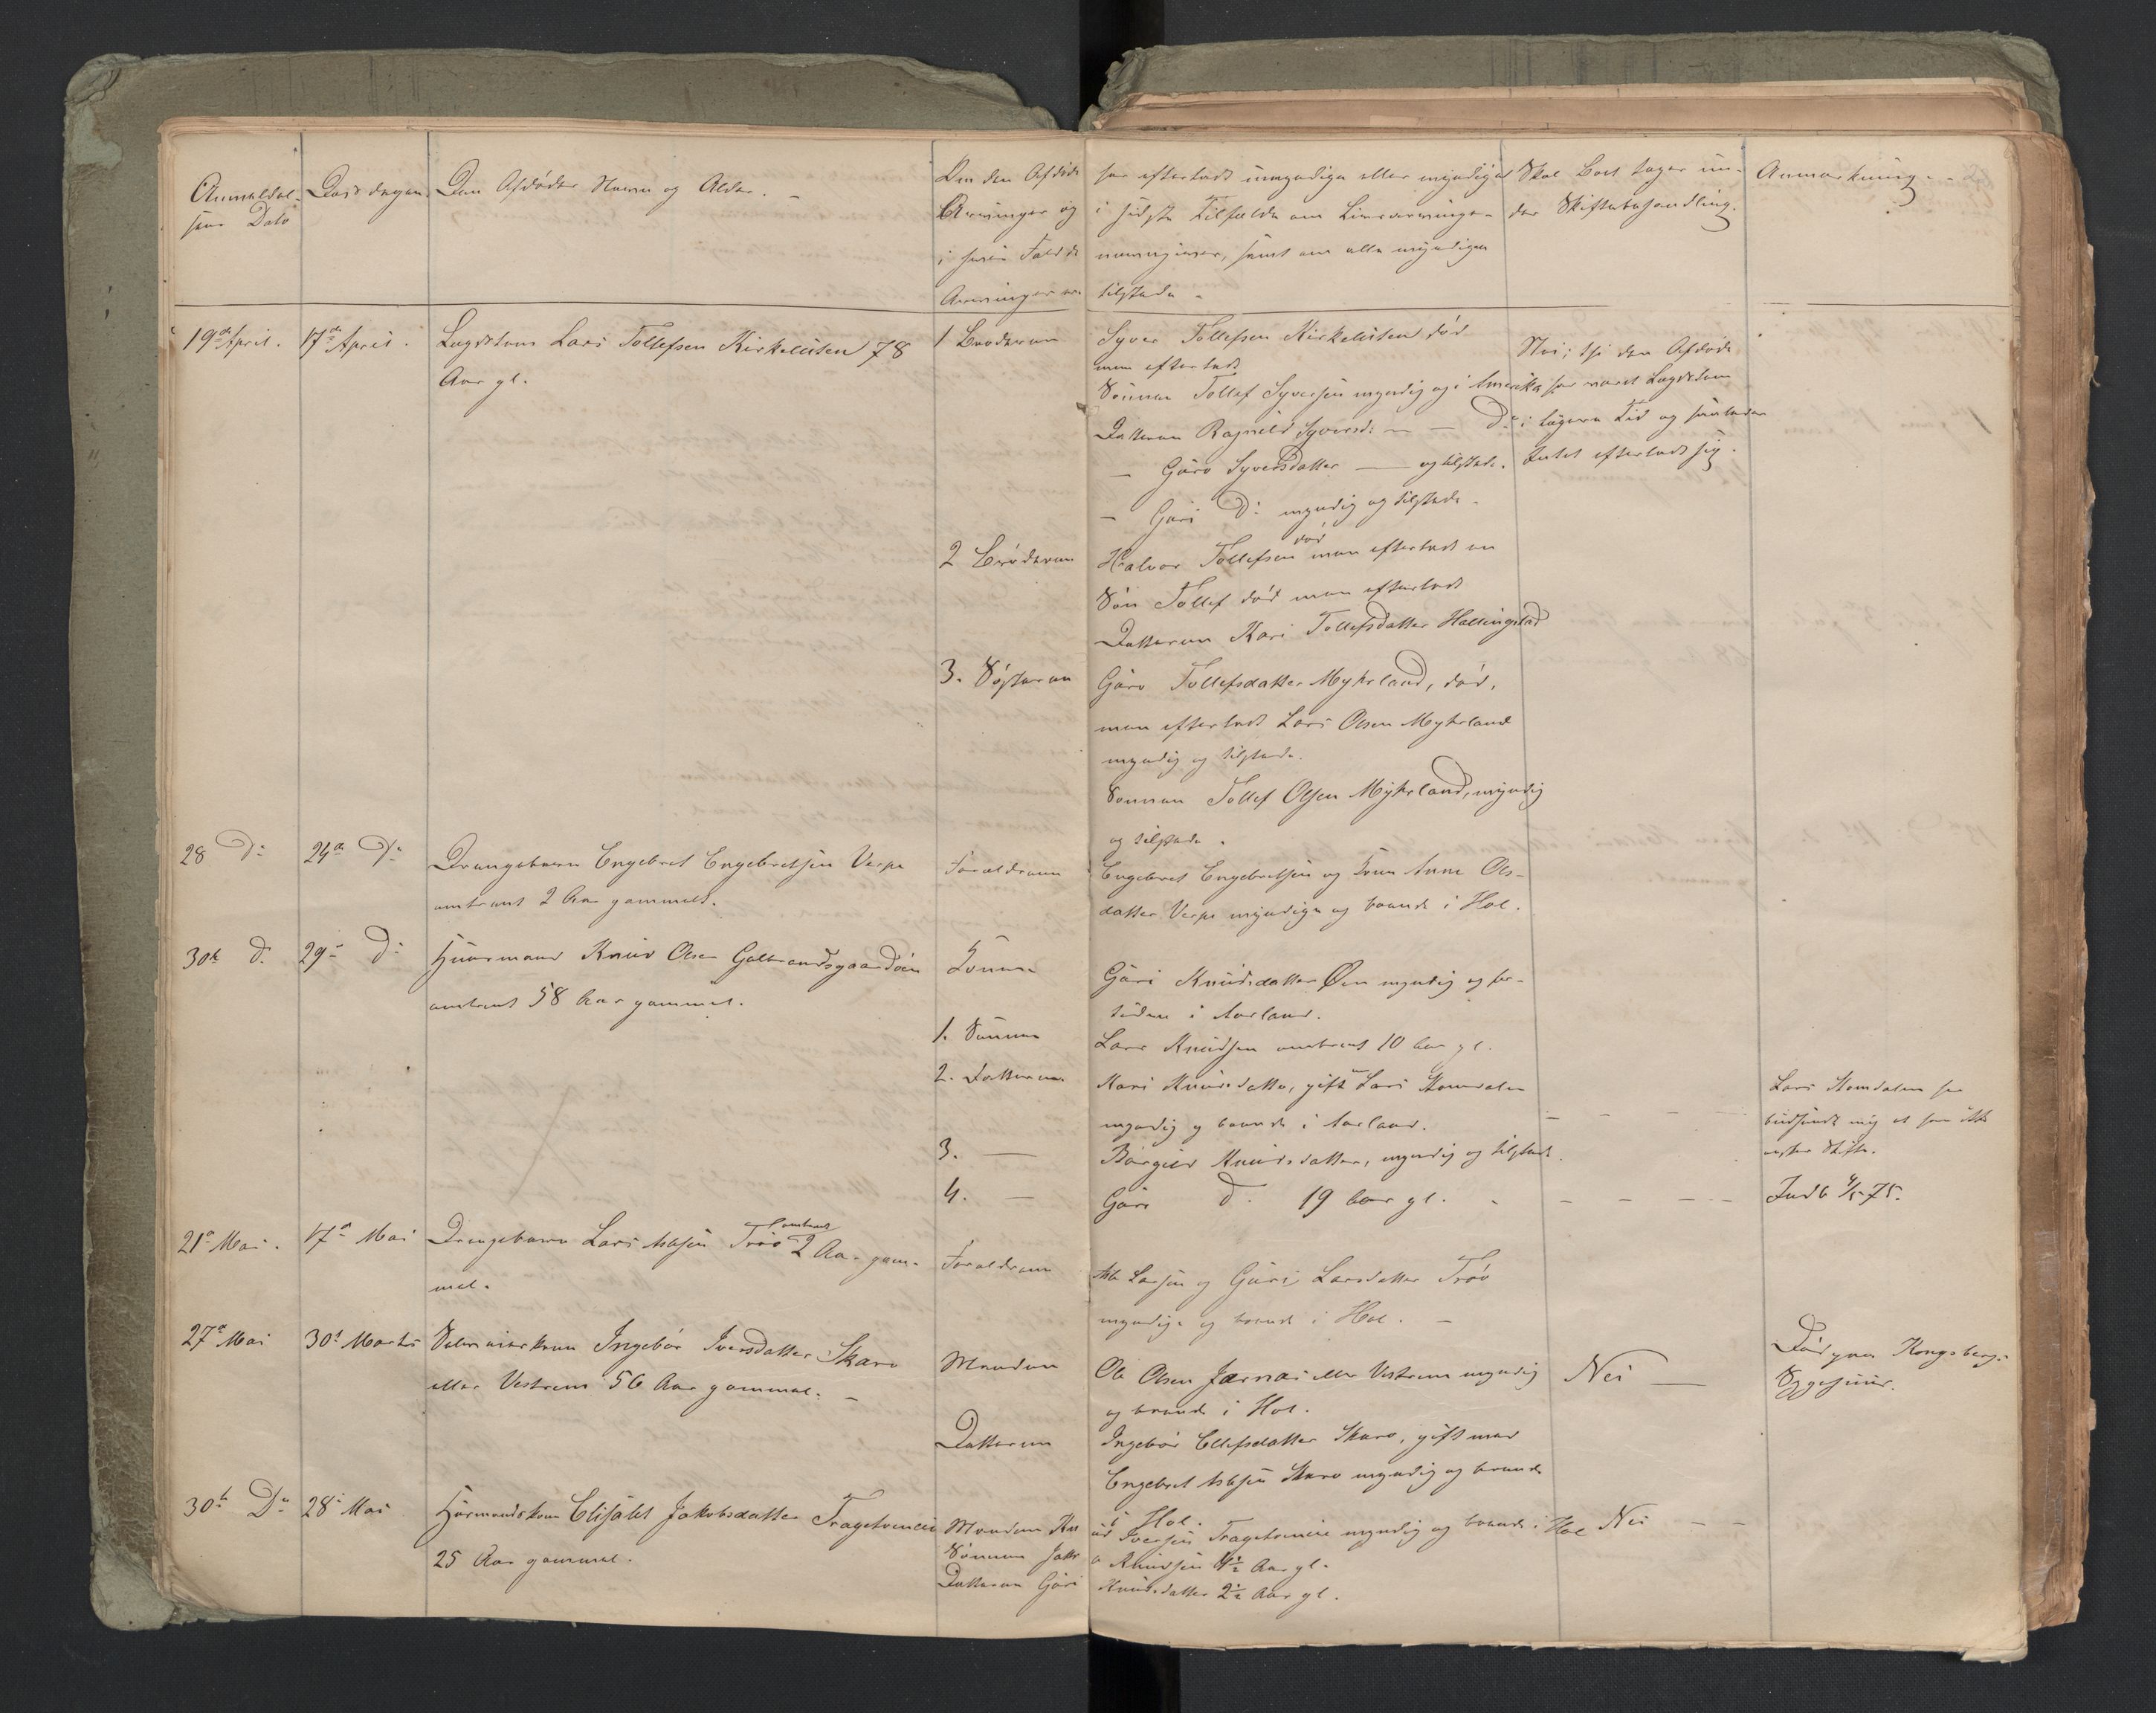 Anmeldel-
sens Dato
Dødsdagen
Den Afdødes Navn og Alder. -
Om den Afdøde har efterladt umyndige eller myndige
Arvinger og i sidste Tilfælde om Livsarvinger
i hvis Fald de
Arvinger ere
samt om alle myndige
tilstede -
Skal Boet tages un-
der Skiftebehandling.
Anmærkning. -
19de April. 17de April. Lægdslem Lars Tollefsen Kirkeluten 78
Aar gl.
1 Broderen Syver Tollefsen Kirkeluten død
men efterladt
Sønnen Tollef Syversen myndig og i Amerika
Datteren Ragnild Syversd: — — Do
— Guro Syversdatter — og tilstede.
— Guri Do myndig og tilstede.
Nei; thi den Afdøde
har været Lægdslem
i lengere Tid og saaledes
Intet efterladt sig.
2 Broderen Halvor Tollefsen død men efterladt en
Søn Tollef død men efterladt
Datteren Kari Tollefsdatter Hallingstad
3. Søsteren Guro Tollefsdatter Myhrland, død,
men efterladt Lars Olsen Myhrland
myndig og tilstede.
Sønnen Tollef Olsen Myhrland, myndig
og tilstede.
28 Do 24de Do Drengebarn Engebret Engebretsen Verpe
omtrent 2 Aar gammelt.
Forældrene Engebret Engebretsen og Kone Anne Ols-
datter Verpe myndige og boende i Hol.
30te Do 29de Do Huusmand Knud Olsen Gulbrandsgaardøen
omtrent 58 Aar gammel.
Konen Guri Knudsdatter Øen myndig og for-
tiden i Aurland.
1. Sønnen Lars Knudsen omtrent 10 Aar gl.
2. Datteren Kari Knudsdatter, gift m Lars
myndig og boende i Aurland.
Lars har
mig at han ikke
Skifte.
3. — Børgild Knudsdatter, myndig og tilstede.
4. — Guri Do 19 Aar gl. - - - - - Indb 4/5 75.
21de Mai. 17de Mai Drengebarn Lars Aslesen Trøo omtrent 2 Aar gam-
mel.
Forældrene Asle Larsen og Guri Larsdatter Trøo
myndige og boende i Hol. —
27de Mai 30te Marts Selveierkone Ingebør Iversdatter Skaro
eller Vestrem 56 Aar gammel. —
Manden Ole Olsen Jærnæs eller Vestrem myndig
og boende i Hol.
Nei —
Død paa Kongsbergs
Sygehuus.
Datteren Ingebør Ellefsdatter Skaro, gift med
Engebret Aslesen Skaro myndig og boende
i Hol.
30te Do 28de Mai Huusmandskone Elisabet Jakobsdatter Fragetveneie
25 Aar gammel.
Manden Knud Iversen Fragetveneie myndig og boende i Hol Nei — —
Sønnen Jakob Knudsen 4½ Aar gl.
Datteren Guri Knudsdatter 2½ Aar gl.